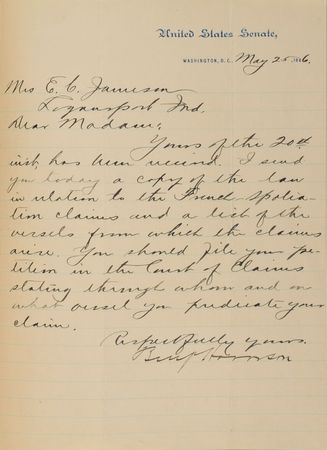 United States Senate,
WASHINGTON, D.C. May 25, 1886.
Mrs E. C. Jamieson
Logansport Ind.
Dear Madam:
Yours of the 20th
inst, has been received. I send
you today a copy of the law
in relation to the French Spolia-
tion claims and a list of the
vessels from which the claims
arise. You should file your pe-
tition in the Court of Claims
stating through whom and on
what vessel you predicate your
claim.
Respectfully yours.
Benj Harrison